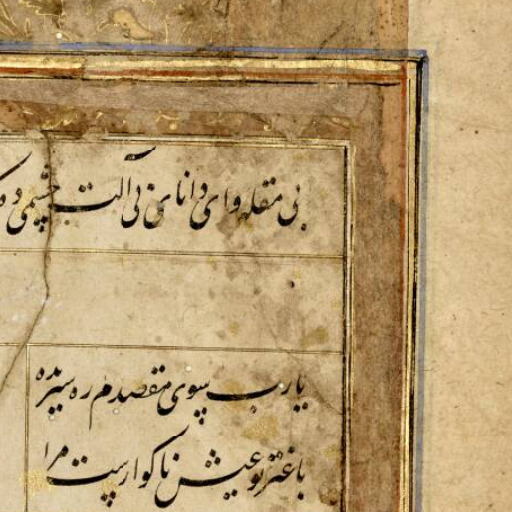 بی مقله وای دانای بی آلت چشمی ده
یارب بسوی مقصدم ره بنده
با غیر تو عیش ناگوارست مرا